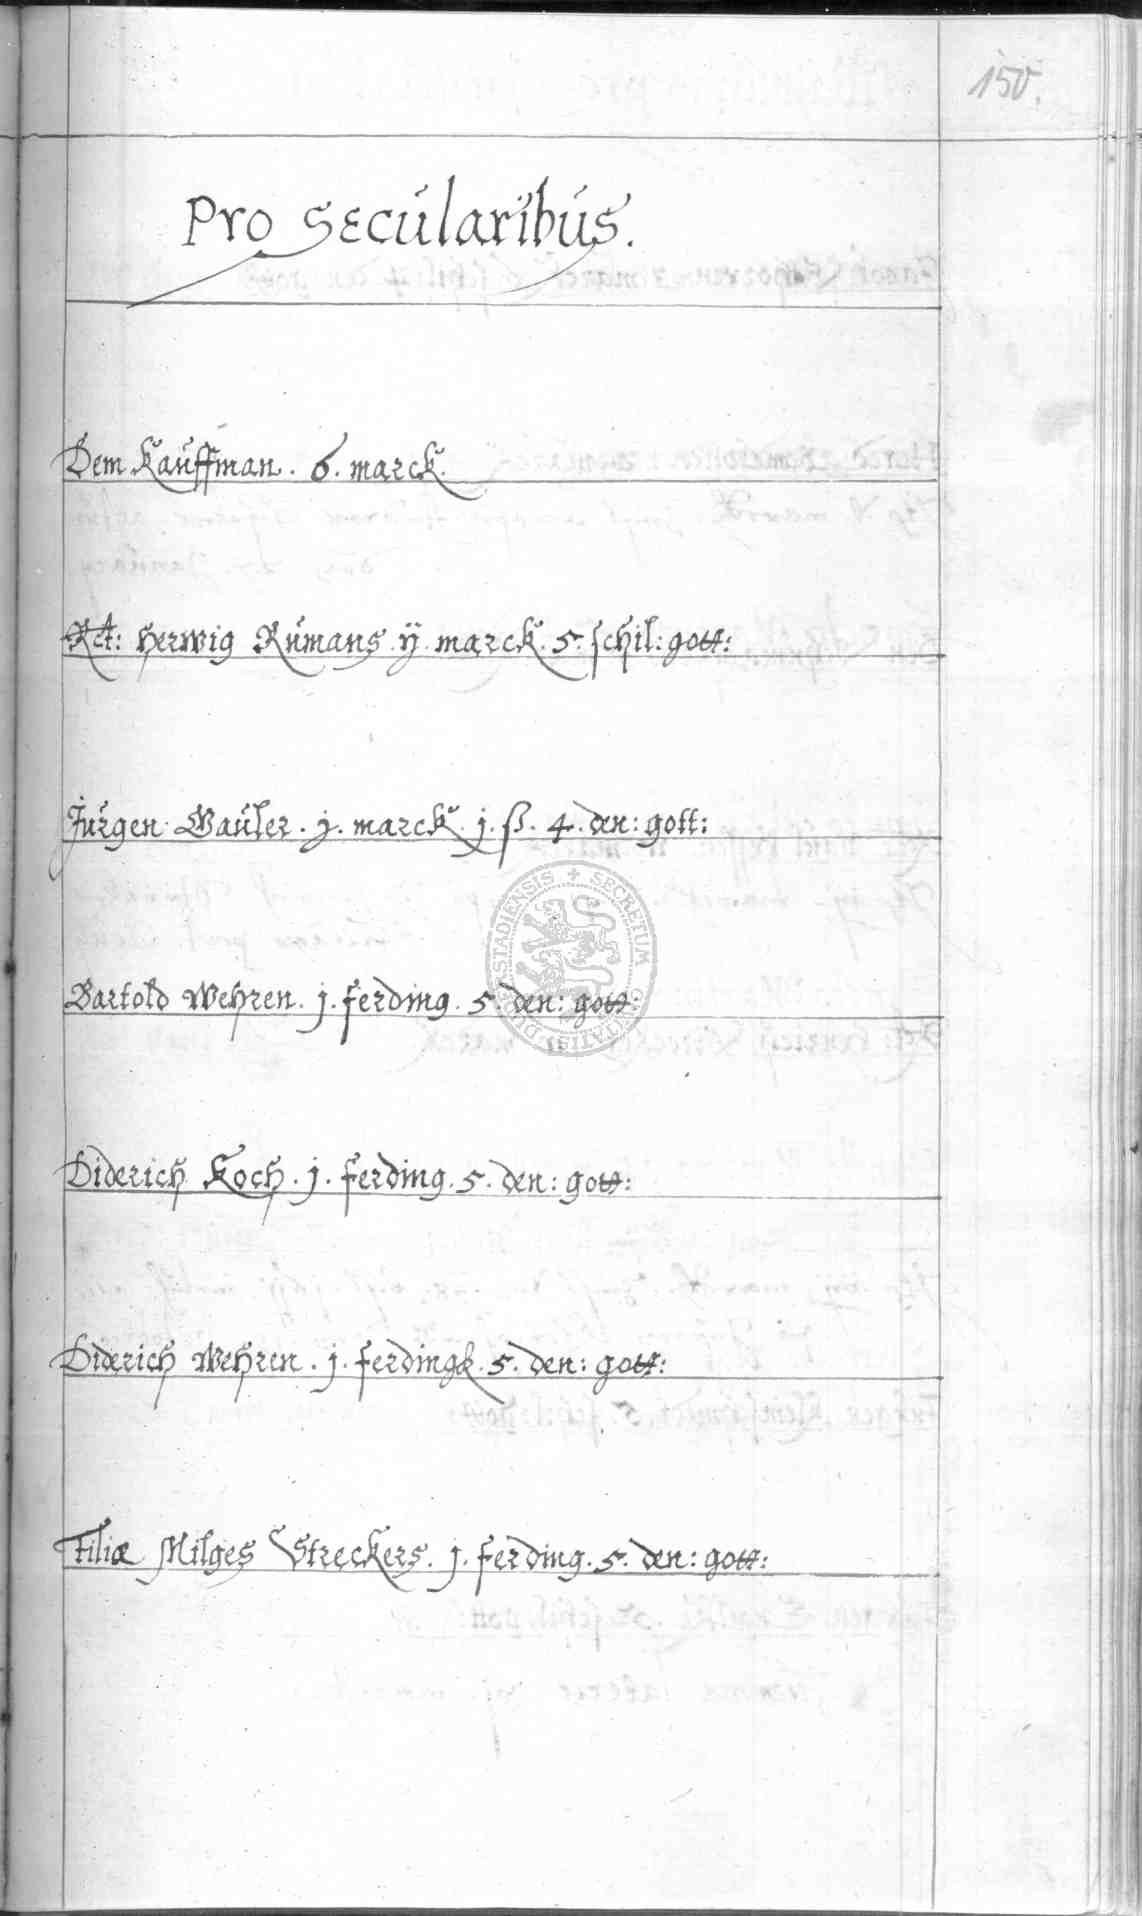 150.
Pro secularibus.
Dem Kauffman. 6. marck.
Rct: Herwig Rumans ij marck. 5. schil: gott:
Jurgen Wauler. j. marck j. ß. 4. den: gott:
SECRETUM CIVITATIS DUDERSTADIENSIS
Bartold Wehren. j. ferding. 5. den: gott:
Diderich Koch. j. ferding. 5. den: gott:
Diderich Wehren. j. ferdingk. 5. den: gott:
Filiæ Milges Streckers. j. ferding. 5. den: gott: